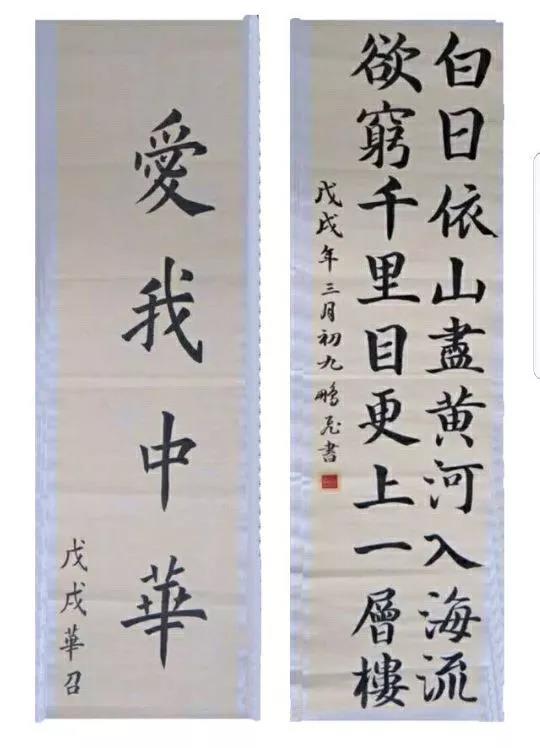 愛我中華
戊戌華召
白日依山盡黄河入海流
欲窮千里目更上一層樓
戊戌年三月初九鵬飛書